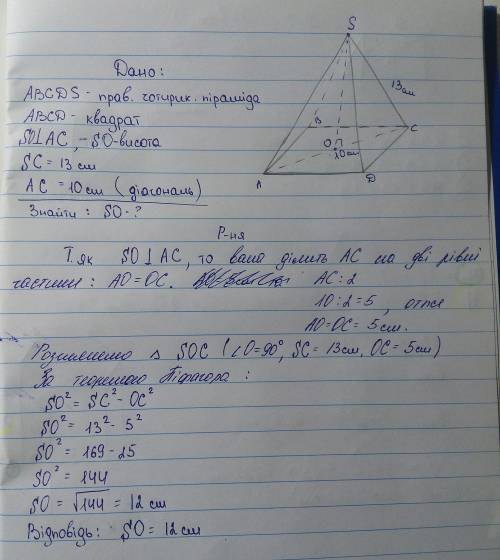 S
Дано:
ABCDS - прав. чотирик. піраміда
13 см
ABCD - квадрат
B
C
SO⊥AC, - SO-висота
O
10см
SC = 13 см
A
D
AC = 10 см (діагональ)
Знайти: SO - ?
Р-ня
Т.як SO⊥AC, то вона ділить AC на дві рівні
частини: AO = OC. AC : 2
10 : 2 = 5, отже
AO = OC = 5 см.
Розглянемо Δ SOC (∠O = 90°, SC = 13 см, OC = 5 см)
За теоремою Піфагора:
SO² = SC² - OC²
SO² = 13² - 5²
SO² = 169 - 25
SO² = 144
SO = √144 = 12 см
Відповідь: SO = 12 см